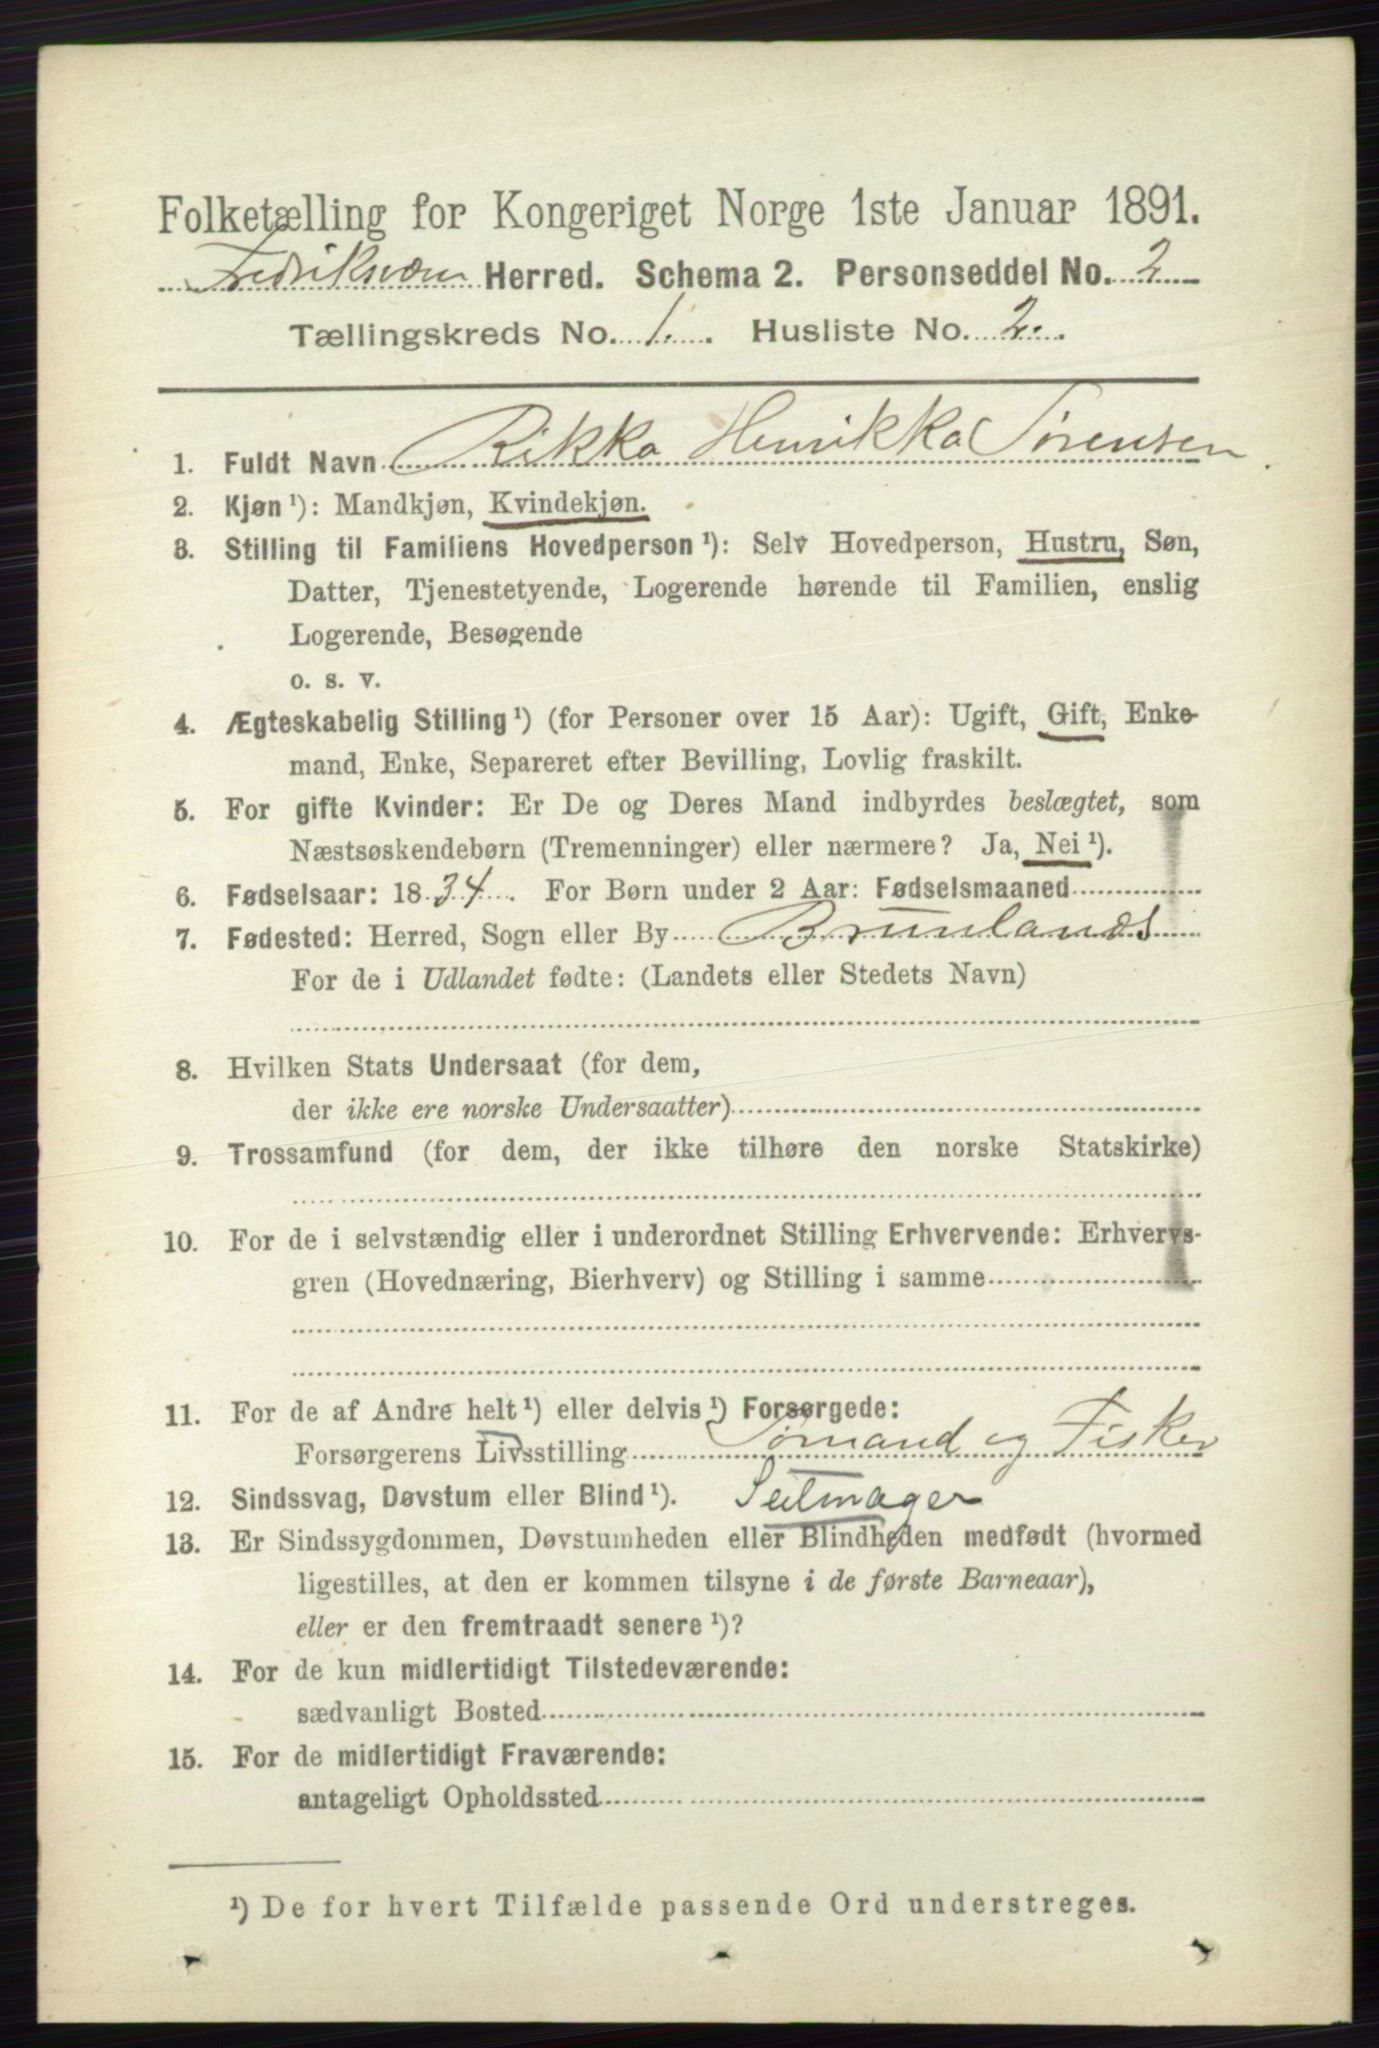 Folketælling for Kongeriget Norge 1ste Januar 1891.
Fredriksværn Herred. Schema 2. Personseddel No. 2
Tællingskreds No. 1. Husliste No. 2.
1. Fuldt Navn Rikka Henrikka Sørensen
2. Kjøn ¹): Mandkjøn, Kvindekjøn.
3. Stilling til Familiens Hovedperson ¹): Selv Hovedperson, Hustru, Søn,
Datter, Tjenestetyende, Logerende hørende til Familien, enslig
Logerende, Besøgende
o. s. v.
4. Ægteskabelig Stilling ¹) (for Personer over 15 Aar): Ugift, Gift, Enke-
mand, Enke, Separeret efter Bevilling, Lovlig fraskilt.
5. For gifte Kvinder: Er De og Deres Mand indbyrdes beslægtet, som
Næstsøskendebørn (Tremenninger) eller nærmere? Ja, Nei ¹).
6. Fødselsaar: 1834. For Børn under 2 Aar: Fødselsmaaned
7. Fødested: Herred, Sogn eller By Brunlanæs
For de i Udlandet fødte: (Landets eller Stedets Navn)
8. Hvilken Stats Undersaat (for dem,
der ikke ere norske Undersaatter)
9. Trossamfund (for dem, der ikke tilhøre den norske Statskirke)
10. For de i selvstændig eller i underordnet Stilling Erhvervende: Erhvervs-
gren (Hovednæring, Bierhverv) og Stilling i samme
11. For de af Andre helt ¹) eller delvis ¹) Forsørgede:
Forsørgerens Livsstilling Sømand og Fisker
12. Sindssvag, Døvstum eller Blind ¹). Seilmager
13. Er Sindssygdommen, Døvstumheden eller Blindheden medfødt (hvormed
ligestilles, at den er kommen tilsyne i de første Barneaar),
eller er den fremtraadt senere ¹)?
14. For de kun midlertidigt Tilstedeværende:
sædvanligt Bosted
15. For de midlertidigt Fraværende:
antageligt Opholdssted
¹) De for hvert Tilfælde passende Ord understreges.